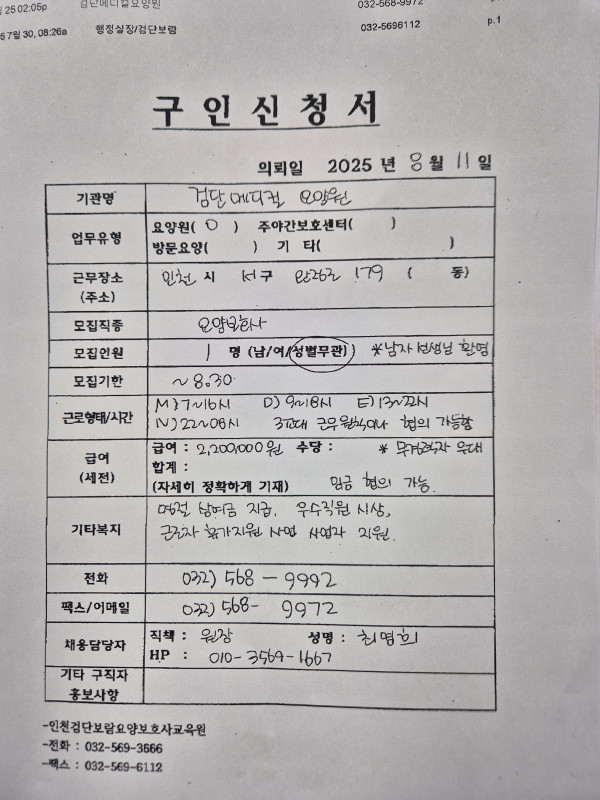 25 02:05p 검단메디컬요양원 032-568-9972
7월 30, 08:26a 행정실장/검단보람 032-5696112 p.1
구 인 신 청 서
의뢰일 2025 년 8 월 11 일
기관명 검단메디컬 요양원
업무유형 요양원( O ) 주야간보호센터( )
방문요양( ) 기 타( )
근무장소 (주소) 인천 시 서 구 완정로 179 ( 동)
모집직종 요양보호사
모집인원 1 명 (남/여/성별무관) *남자 선생님 환영
모집기한 ~ 8.30.
근로형태/시간 M) 7~16시 D) 9~18시 E) 13~22시
N) 22~08시 3교대 근무원칙이나 협의 가능함
급여 (세전) 급여 : 2,200,000원 수당 : * 무경력자 우대
합계 :
(자세히 정확하게 기재) 임금 협의 가능.
기타복지 명절 상여금 지급, 우수직원 시상,
근로자 휴가지원 사업 사업자 지원.
전화 032) 568 - 9992
팩스/이메일 032) 568- 9972
채용담당자 직책 : 원장 성명 : 최명희
HP : 010-3569-1667
기타 구직자
홍보사항
-인천검단보람요양보호사교육원
-전화 : 032-569-3666
-팩스 : 032-569-6112